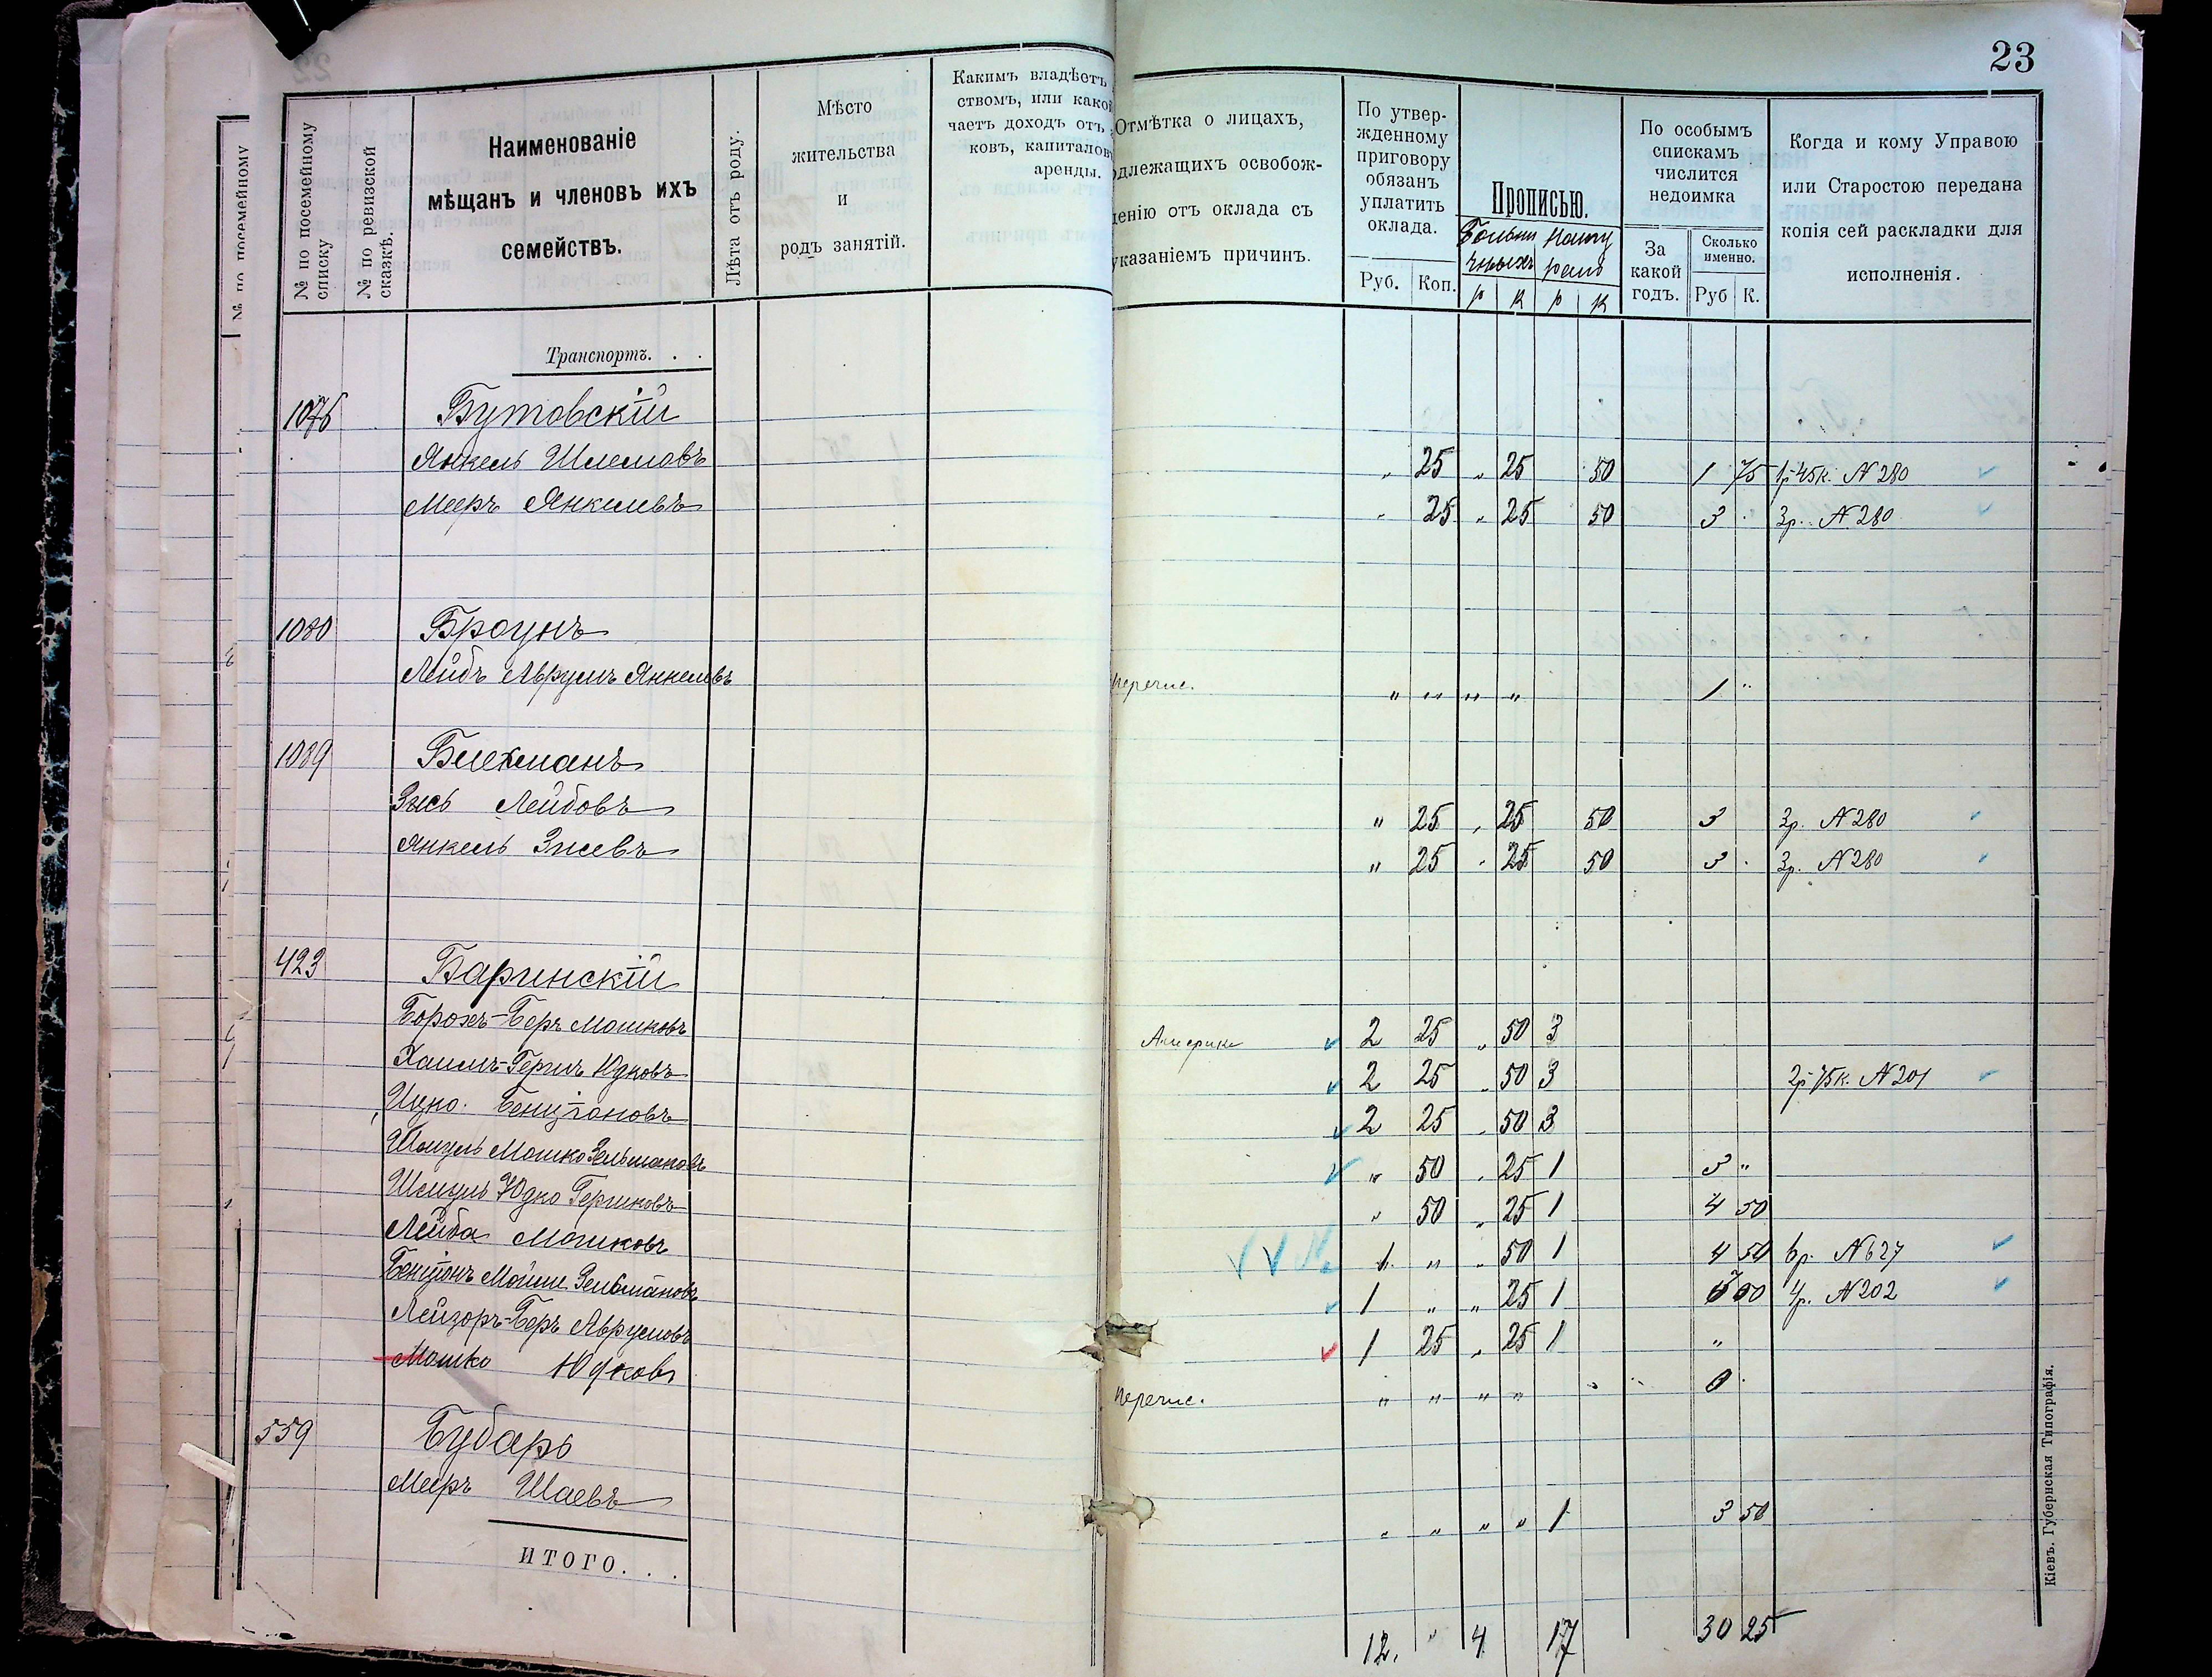 23
№ по посемейному
№ по посемейному списку
№ по ревизской сказкѣ.
Наименованіе
мѣщанъ и членовъ ихъ
семействъ.
Лѣта отъ роду.
Мѣсто
жительства
и
родъ занятій.
Какимъ владѣетъ
ствомъ, или како
чаетъ доходъ отъ
ковъ, капиталовъ
аренды.
Отмѣтка о лицахъ,
длежащихъ освобож-
енію отъ оклада съ
указаніемъ причинъ.
По утвер-
жденному
приговору
обязанъ
уплатить
оклада.
Руб. Коп.
Прописью.
р к р к
По особымъ
спискамъ
числится
недоимка
За
какой
годъ.
Сколько
именно.
Руб К.
Когда и кому Управою
или Старостою передана
копія сей раскладки для
исполненія.
Транспортъ. . .
1076 Бутовскій
Янкель Шлемовъ " 25 " 25 50 1 75 1р 45к. N 280
Мееръ Янкелевъ " 25 " 25 50 3 . 3р. N 280
1080 Броунъ
Лейбъ Аврумъ Янкелевъ перечис. " " " " 1 "
1089 Блехманъ
Зысь Лейбовъ " 25 " 25 50 3 3р. N 280
Янкель Зысевъ " 25 " 25 50 3 . 3р. N 280
423 Баринскій
Борохъ-Беръ Мошковъ Америка 2 25 " 50 3
Хаимъ-Гершъ Юдковъ 2 25 " 50 3 2р 75к. N 201
Ицко Бенціоновъ 2 25 " 50 3
Шмуль Мошко Зельмановъ " 50 " 25 1 3 "
Шмуль Юдко Гершковъ " 50 " 25 1 4 50
Лейба Мошковъ 1 " " 50 1 4 50 6р. N 627
Бенціонъ Мойше Зельмановъ 1 " " 25 1 4р. N 202
Лейзоръ-Беръ Аврумовъ 1 25 " 25 1 "
Мошко Юдковъ перечис. " " " " 0
559 Бубарь
Мееръ Шаевъ " " " " 1 3 50
ИТОГО. . .
12. " 4 17 30 25
Кіевъ. Губернская Типографія.